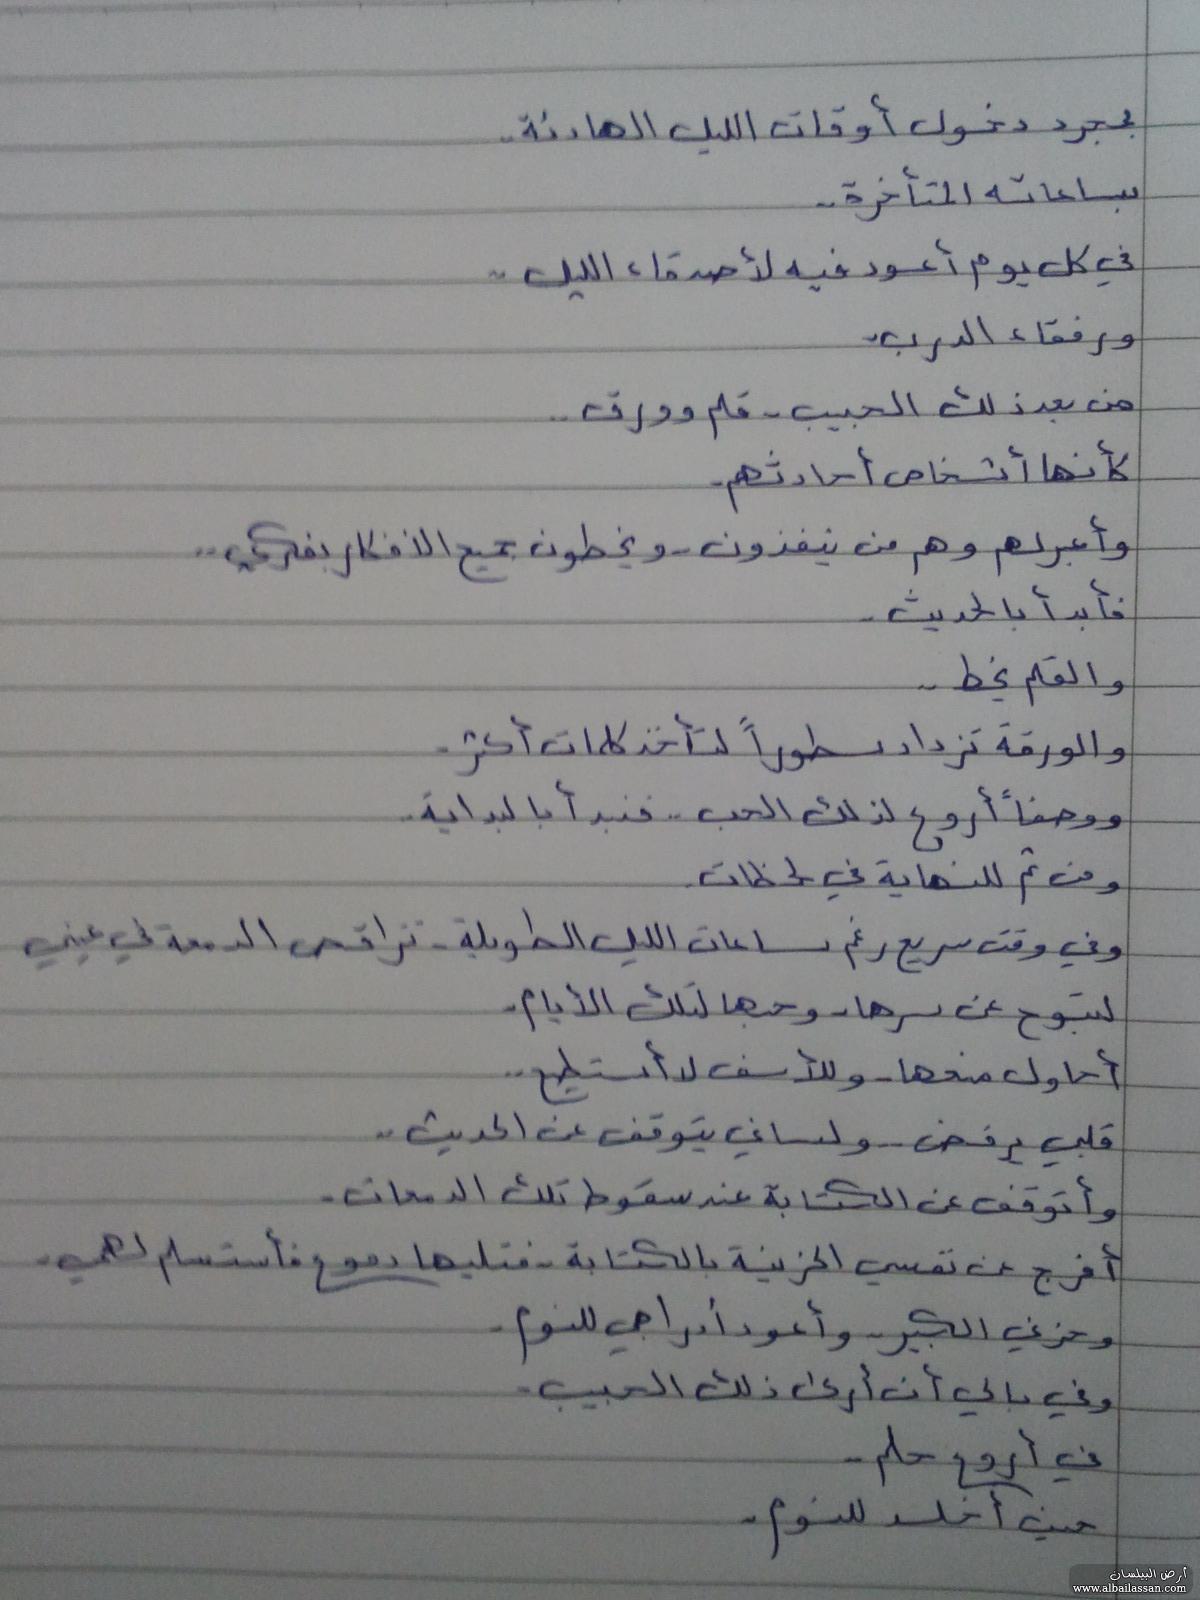 بمجرد دخول أوقات الليل الهادئة..
بساعاته المتأخرة..
في كل يوم أعود فيه لأصدقاء الليل ..
ورفقاء الدرب..
من بعد ذلك الحبيب.. قلم وورق ..
كأنها أشخاص أحادثهم..
وأعبر لهم وهم من ينفذون.. ويخطون جميع الأفكار بفكري..
فأبدأ بالحديث..
والقلم يخط ..
والورقة تزداد سطوراً لتأخذ كلمات أكثر..
ووصفاً أروع لذلك الحب .. فنبدأ بالبداية..
ومن ثم للنهاية في لحظات..
وفي وقت سريع رغم ساعات الليل الطويلة.. تتراقص الدمعة في عيني
لتبوح عن سرها.. وحبها لتلك الأيام..
أحاول منعها.. وللأسف لا أستطيع..
قلبي يرفض.. ولساني يتوقف عن الحديث..
وأتوقف عن الكتابة عند سقوط تلك الدمعات..
أفرج عن نفسي الحزينة بالكتابة.. فتليها دموع فأستسلم لهمي..
وحزني الكبير.. وأعود أدراجي للنوم..
وفي بالي أن أرى ذلك الحبيب..
في أروع حلم..
حين أخلد للنوم..
أرض البيلسان
www.albailassan.com